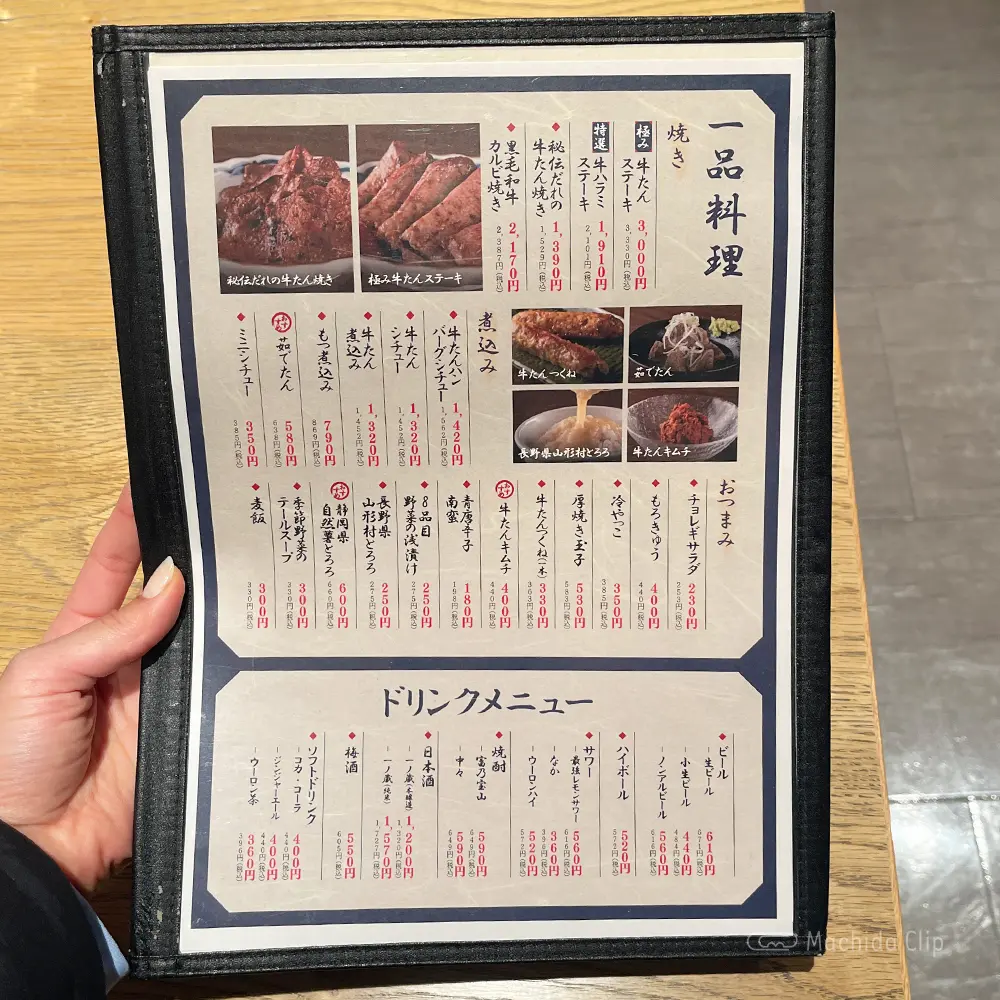 一品料理
焼き
極み 牛たん
ステーキ
3,000円
3,330円(税込)
特選 牛ハラミ
ステーキ
1,910円
2,101円(税込)
秘伝だれの
牛たん焼き
1,390円
1,529円(税込)
黒毛和牛
カルビ焼き
2,170円
2,387円(税込)
極み牛たんステーキ
秘伝だれの牛たん焼き
牛たんつくね
茹でたん
長野県山形村とろろ
牛たんキムチ
煮込み
牛たんハン
バーグシチュー
1,420円
1,562円(税込)
牛たん
シチュー
1,320円
1,452円(税込)
牛たん
煮込み
1,320円
1,452円(税込)
もつ煮込み
790円
869円(税込)
おすすめ 茹でたん
580円
638円(税込)
ミニシチュー
350円
385円(税込)
おつまみ
チョレギサラダ
230円
253円(税込)
もろきゅう
400円
440円(税込)
冷やっこ
350円
385円(税込)
厚焼き玉子
530円
583円(税込)
牛たんつくね(一本)
330円
363円(税込)
おすすめ 牛たんキムチ
400円
440円(税込)
青唐辛子
南蛮
180円
198円(税込)
8品目
野菜の浅漬け
250円
275円(税込)
長野県
山形村とろろ
250円
275円(税込)
おすすめ 静岡県
自然薯とろろ
600円
660円(税込)
季節野菜の
テールスープ
300円
330円(税込)
麦飯
300円
330円(税込)
ドリンクメニュー
ビール
－生ビール
610円
671円(税込)
－小生ビール
440円
484円(税込)
－ノンアルビール
560円
616円(税込)
ハイボール
520円
572円(税込)
サワー
－最強レモンサワー
560円
616円(税込)
－なか
360円
396円(税込)
－ウーロンハイ
520円
572円(税込)
焼酎
－富乃宝山
590円
649円(税込)
－中々
590円
649円(税込)
日本酒
－一ノ蔵(本醸造)
1,200円
1,320円(税込)
－一ノ蔵(純米)
1,570円
1,727円(税込)
梅酒
550円
605円(税込)
ソフトドリンク
－コカ・コーラ
400円
440円(税込)
－ジンジャーエール
400円
440円(税込)
－ウーロン茶
360円
396円(税込)
Machida Clip